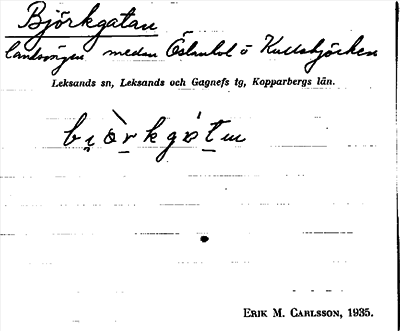 Björkgatan
landsvägen medan Östanhol o Kullsbjörken
Leksands sn, Leksands och Gagnefs tg, Kopparbergs län.
ERIK M. CARLSSON, 1935.